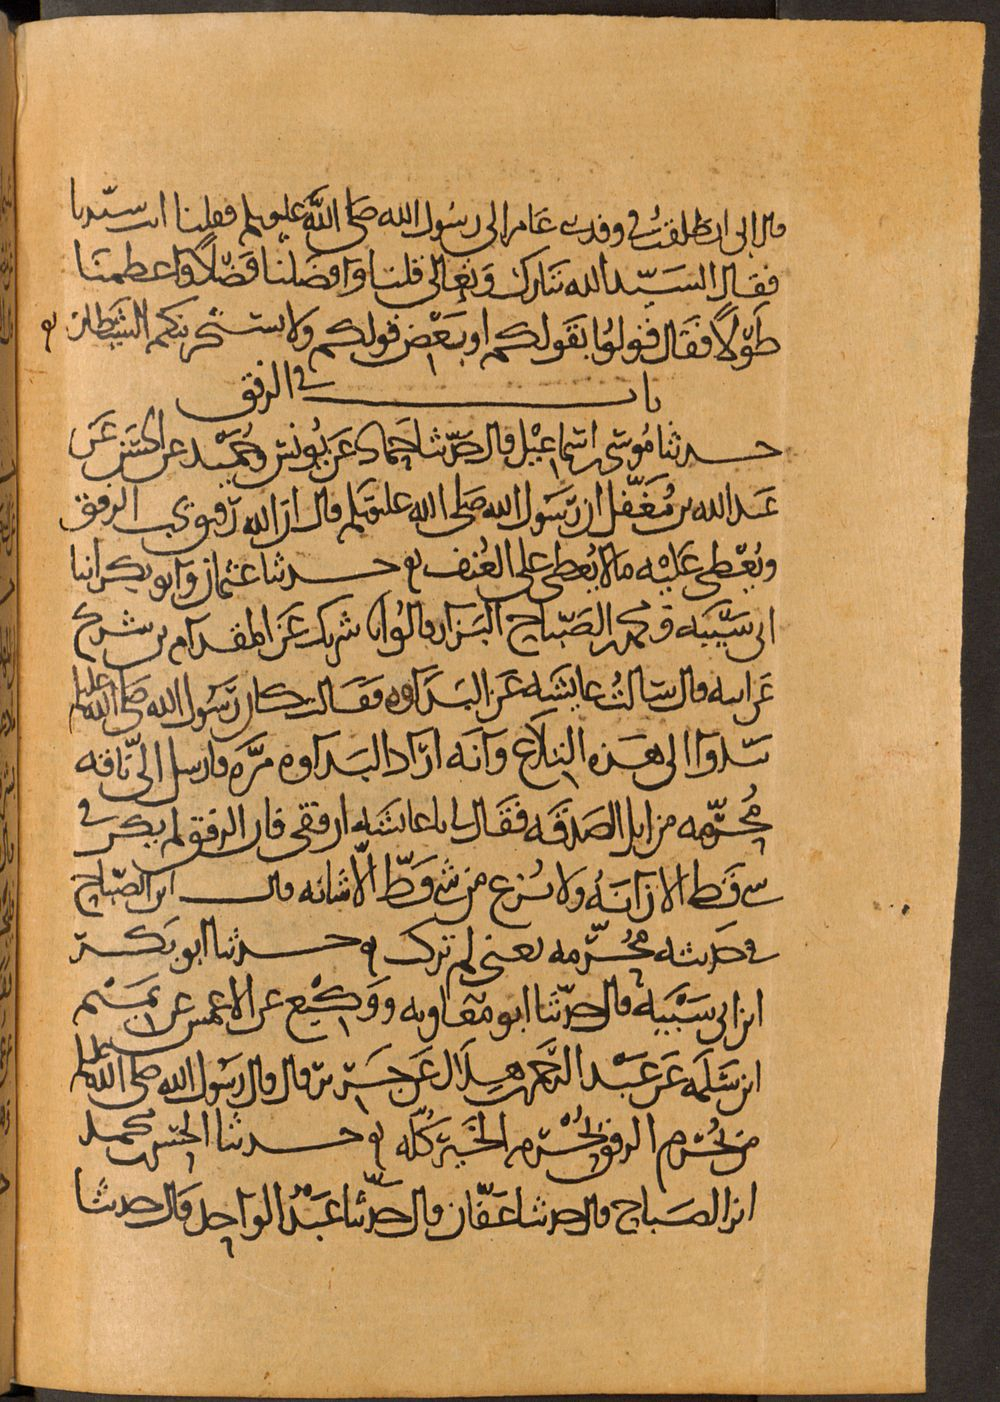 قال ابى انطلقت فى وفد بنى عامر الى رسول الله صلى الله عليه وسلم فقلنا انت سيدنا
فقال السيد الله تبارك وتعالى قلنا وافضلنا فضلا واعظمنا
طولا فقال قولوا بقولكم او بعض قولكم ولا يستجرينكم الشيطان
باب فى الرفق
حدثنا موسى بن اسماعيل قال حدثنا حماد عن يونس وحميد عن الحسن عن
عبد الله بن مغفل ان رسول الله صلى الله عليه وسلم قال ان الله رفيق يحب الرفق
ويعطى عليه ما لا يعطى على العنف حدثنا عثمان وابو بكر ابنا
ابى شيبه ومحمد بن الصباح البزاز قالوا نا شريك عن المقدام بن شريح
عن ابيه قال سالت عايشه عن البداوه فقالت كان رسول الله صلى الله عليه وسلم
يبدوا الى هذه التلاع وانه اراد البداوه مره فارسل الى ناقه
محرمه من ابل الصدقه فقال لى يا عايشه ارفقى فان الرفق لم يكن فى
شى قط الا زانه ولا نزع من شى قط الا شانه قال ابن الصباح
فى حديثه محرمه يعنى لم تركب حدثنا ابو بكر
ابن ابى شيبه قال حدثنا ابو معاويه ووكيع عن الاعمش عن تميم
ابن سلمه عن عبد الرحمن بن هلال عن جرير قال قال رسول الله صلى الله عليه وسلم
من يحرم الرفق يحرم الخير كله حدثنا الحسن بن محمد
ابن الصباح قال حدثنا عفان قال حدثنا عبد الواحد قال حدثنا